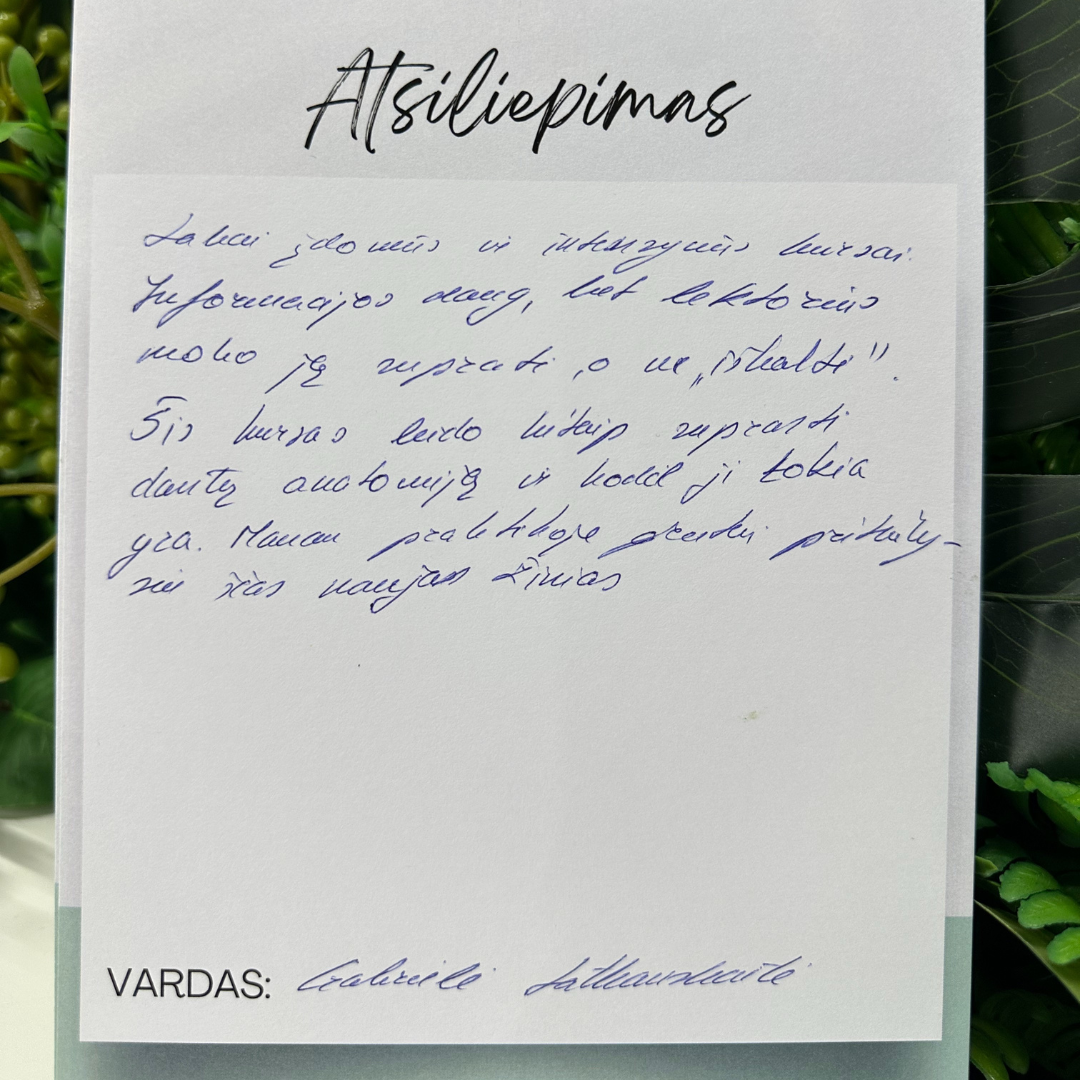 Atsiliepimas
Labai įdomūs ir intensyvūs kursai.
Informacijos daug, bet lektorius
moko ją suprasti, o ne „iškalti“.
Šis kursas leido kitaip suprasti
dantų anatomiją ir kodėl ji tokia
yra. Manau praktikoje greitai pritaiky-
siu šias naujas žinias
VARDAS: Gabrielė